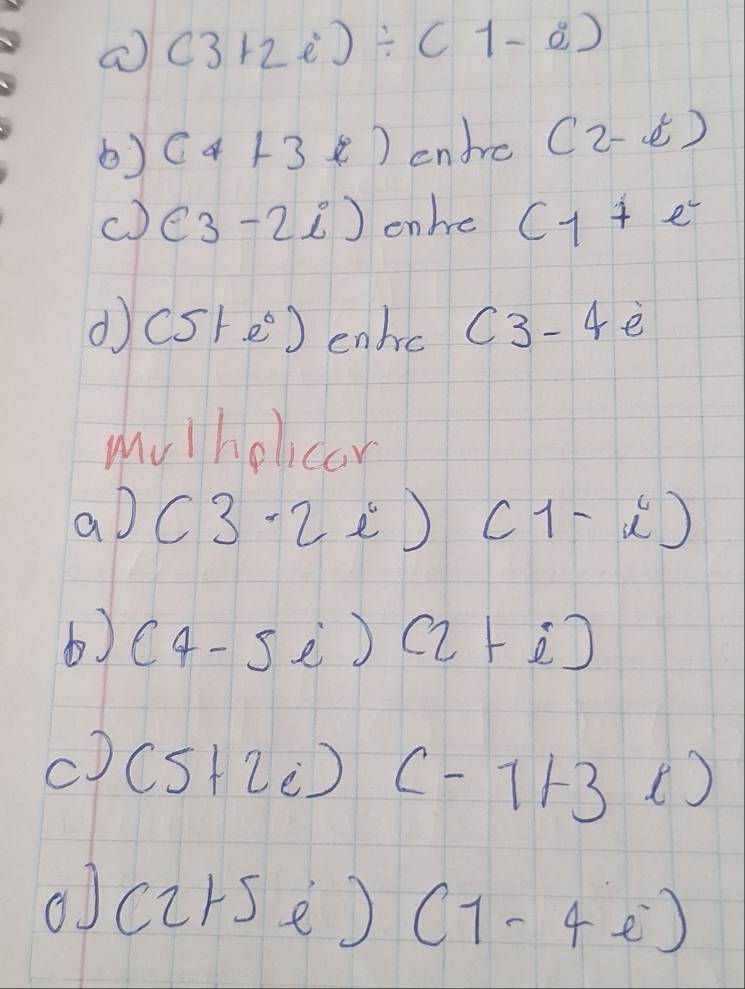 a) (3+2i) ÷ (1-i)
b) (4+3i) entre (2-i)
c) (3-2i) entre (1+i
d) (5+i) entre (3-4i
Multiplicar
a) (3-2i) (1-i)
b) (4-5i) (2+i)
c) (5+2i) (-1+3i)
d) (2+5i) (1-4i)